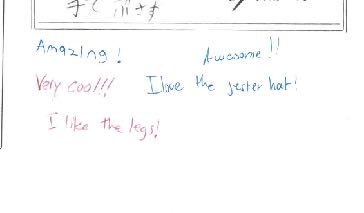 Amazing!
Awesome!!
Very cool!!!
I love the jester hat!
I like the legs!